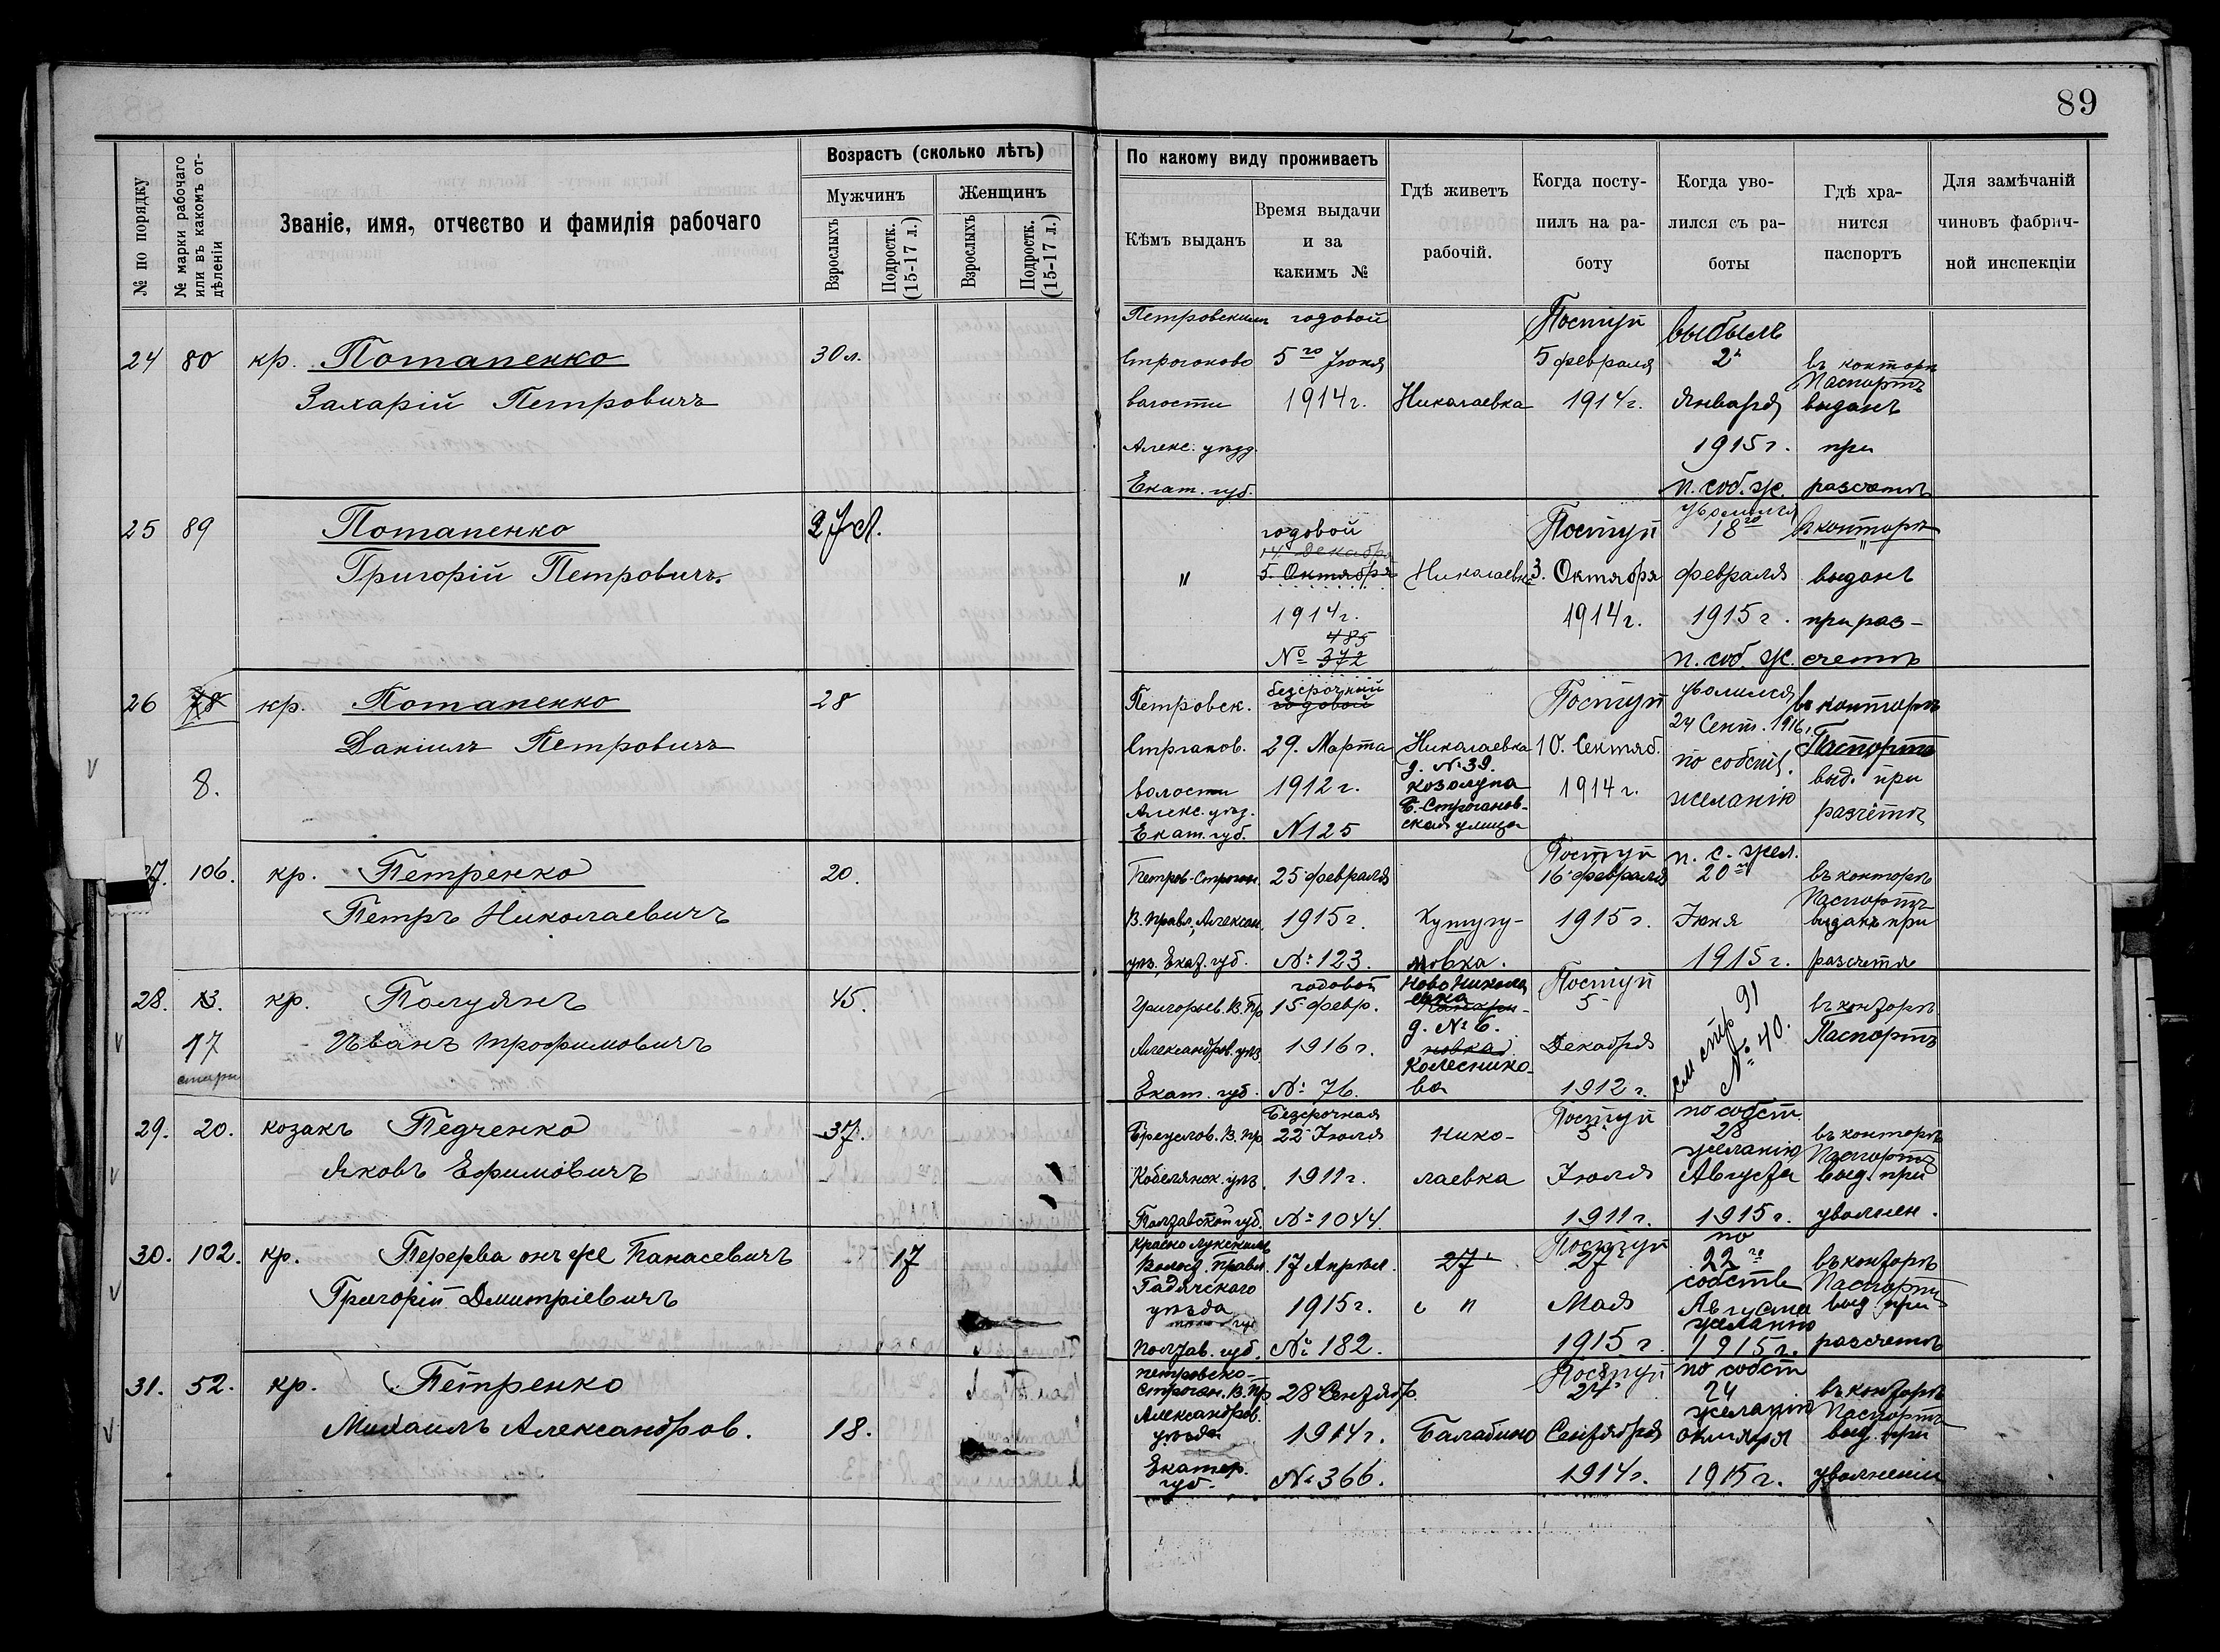 89
№ по порядку
№ марки рабочаго или въ какомъ отдѣленіи
Званіе, имя, отчество и фамилія рабочаго
Возрастъ (сколько лѣтъ)
Мужчинъ
Женщинъ
Взрослыхъ
Подростк. (15-17 л.)
Взрослыхъ
Подростк. (15-17 л.)
По какому виду проживаетъ
Кѣмъ выданъ
Время выдачи и за какимъ №
Гдѣ живетъ рабочій.
Когда поступилъ на работу
Когда уволился съ работы
Гдѣ хранится паспортъ
Для замѣчаній чиновъ фабричной инспекціи
24 80 кр. Потапенко 30 л.
Захарій Петровичъ
Петровскимъ годовой Поступ выбылъ
Строгоново 5го Іюня 5 февраля 2го въ конторѣ
Паспортъ
волости 1914 г. Николаевка 1914 г. Января выданъ
Алекс. уѣзд. 1915 г. при
Екат. губ. п. соб. ж. разсчетѣ
25 89 Потапенко 27 л.
Григорій Петровичъ.
годовой Поступ уволился 18го въ конторѣ
14 декабря
" 5. Октября Николаевка 3. Октября февраля выданъ
1914 г. 1914 г. 1915 г. при раз-
485
№ 372 п. соб. ж. счетѣ
26 78 кр. Потапенко 28
Даніилъ Петровичъ
8.
Петровск. безсрочный Поступ уволился въ конторѣ
годовой 24 Сент. 1916 г.
Строганов. 29. Марта Николаевка 10. Сентяб. по собст. Паспортъ
д. № 39.
волости 1912 г. Козолупа 1914 г. желанію выд. при
Алекс. уѣзд. Б.-Строганов-
Екат. губ. N 125 ская улица разчетѣ
27. 106. кр. Петренко 20.
Петръ Николаевичъ
Поступ п. с. жел.
Петров-Строган. 25 февраля 16 февраля 20го въ конторѣ
Паспортъ
В. Правл., Алексан. 1915 г. Кутугу- 1915 г. Іюня выданъ при
уѣз. Екат. губ. № 123. мовка. 1915 г. разсчетѣ
28. 13. кр. Полуянъ 45.
17 Иванъ Трофимовичъ
годовой Ново Никола Поступ
Григорьев. В. Пр 15 февр. евка 5 въ конторѣ
д. № 6.
Александров. уѣз 1916 г. новка Декабря см стр 91 Паспортъ
Колеснико-
Екат. губ. № 76. ва 1912 г. № 40.
29. 20. козакъ Педченко 37.
Яковъ Ефимовичъ
Безсрочная Поступ по собст.
22 Іюля Нико- 5 28 въ конторѣ
желанію Паспортъ
Кобелякск. уѣз. 1911 г. лаевка Іюля Августа выд. при
Полтавской губ. № 1044 1911 г. 1915 г. уволнен.
30. 102. кр. Перерва онъ же Панасевичъ 17
Григорій Дмитріевичъ
Поступ по
Волост. Правл. 17 Апрѣл. 27 27 22го въ конторѣ
Гадячского собств Паспортъ
уѣзда 1915 г. " Мая Августа выд. при
желанію
Полтав. губ. № 182. 1915 г. 1915 г. разсчетѣ
31. 52. кр. Петренко
Михаилъ Александров. 18.
Петровско- Поступ по собст
Строган. В. Пр 28 Сентябр. 24 24 въ конторѣ
Александров. желанію Паспортъ
уѣзда 1914 г. Балабино Сентября октября выд. при
Екатер.
губ. № 366. 1914 г. 1915 г. уволненіи